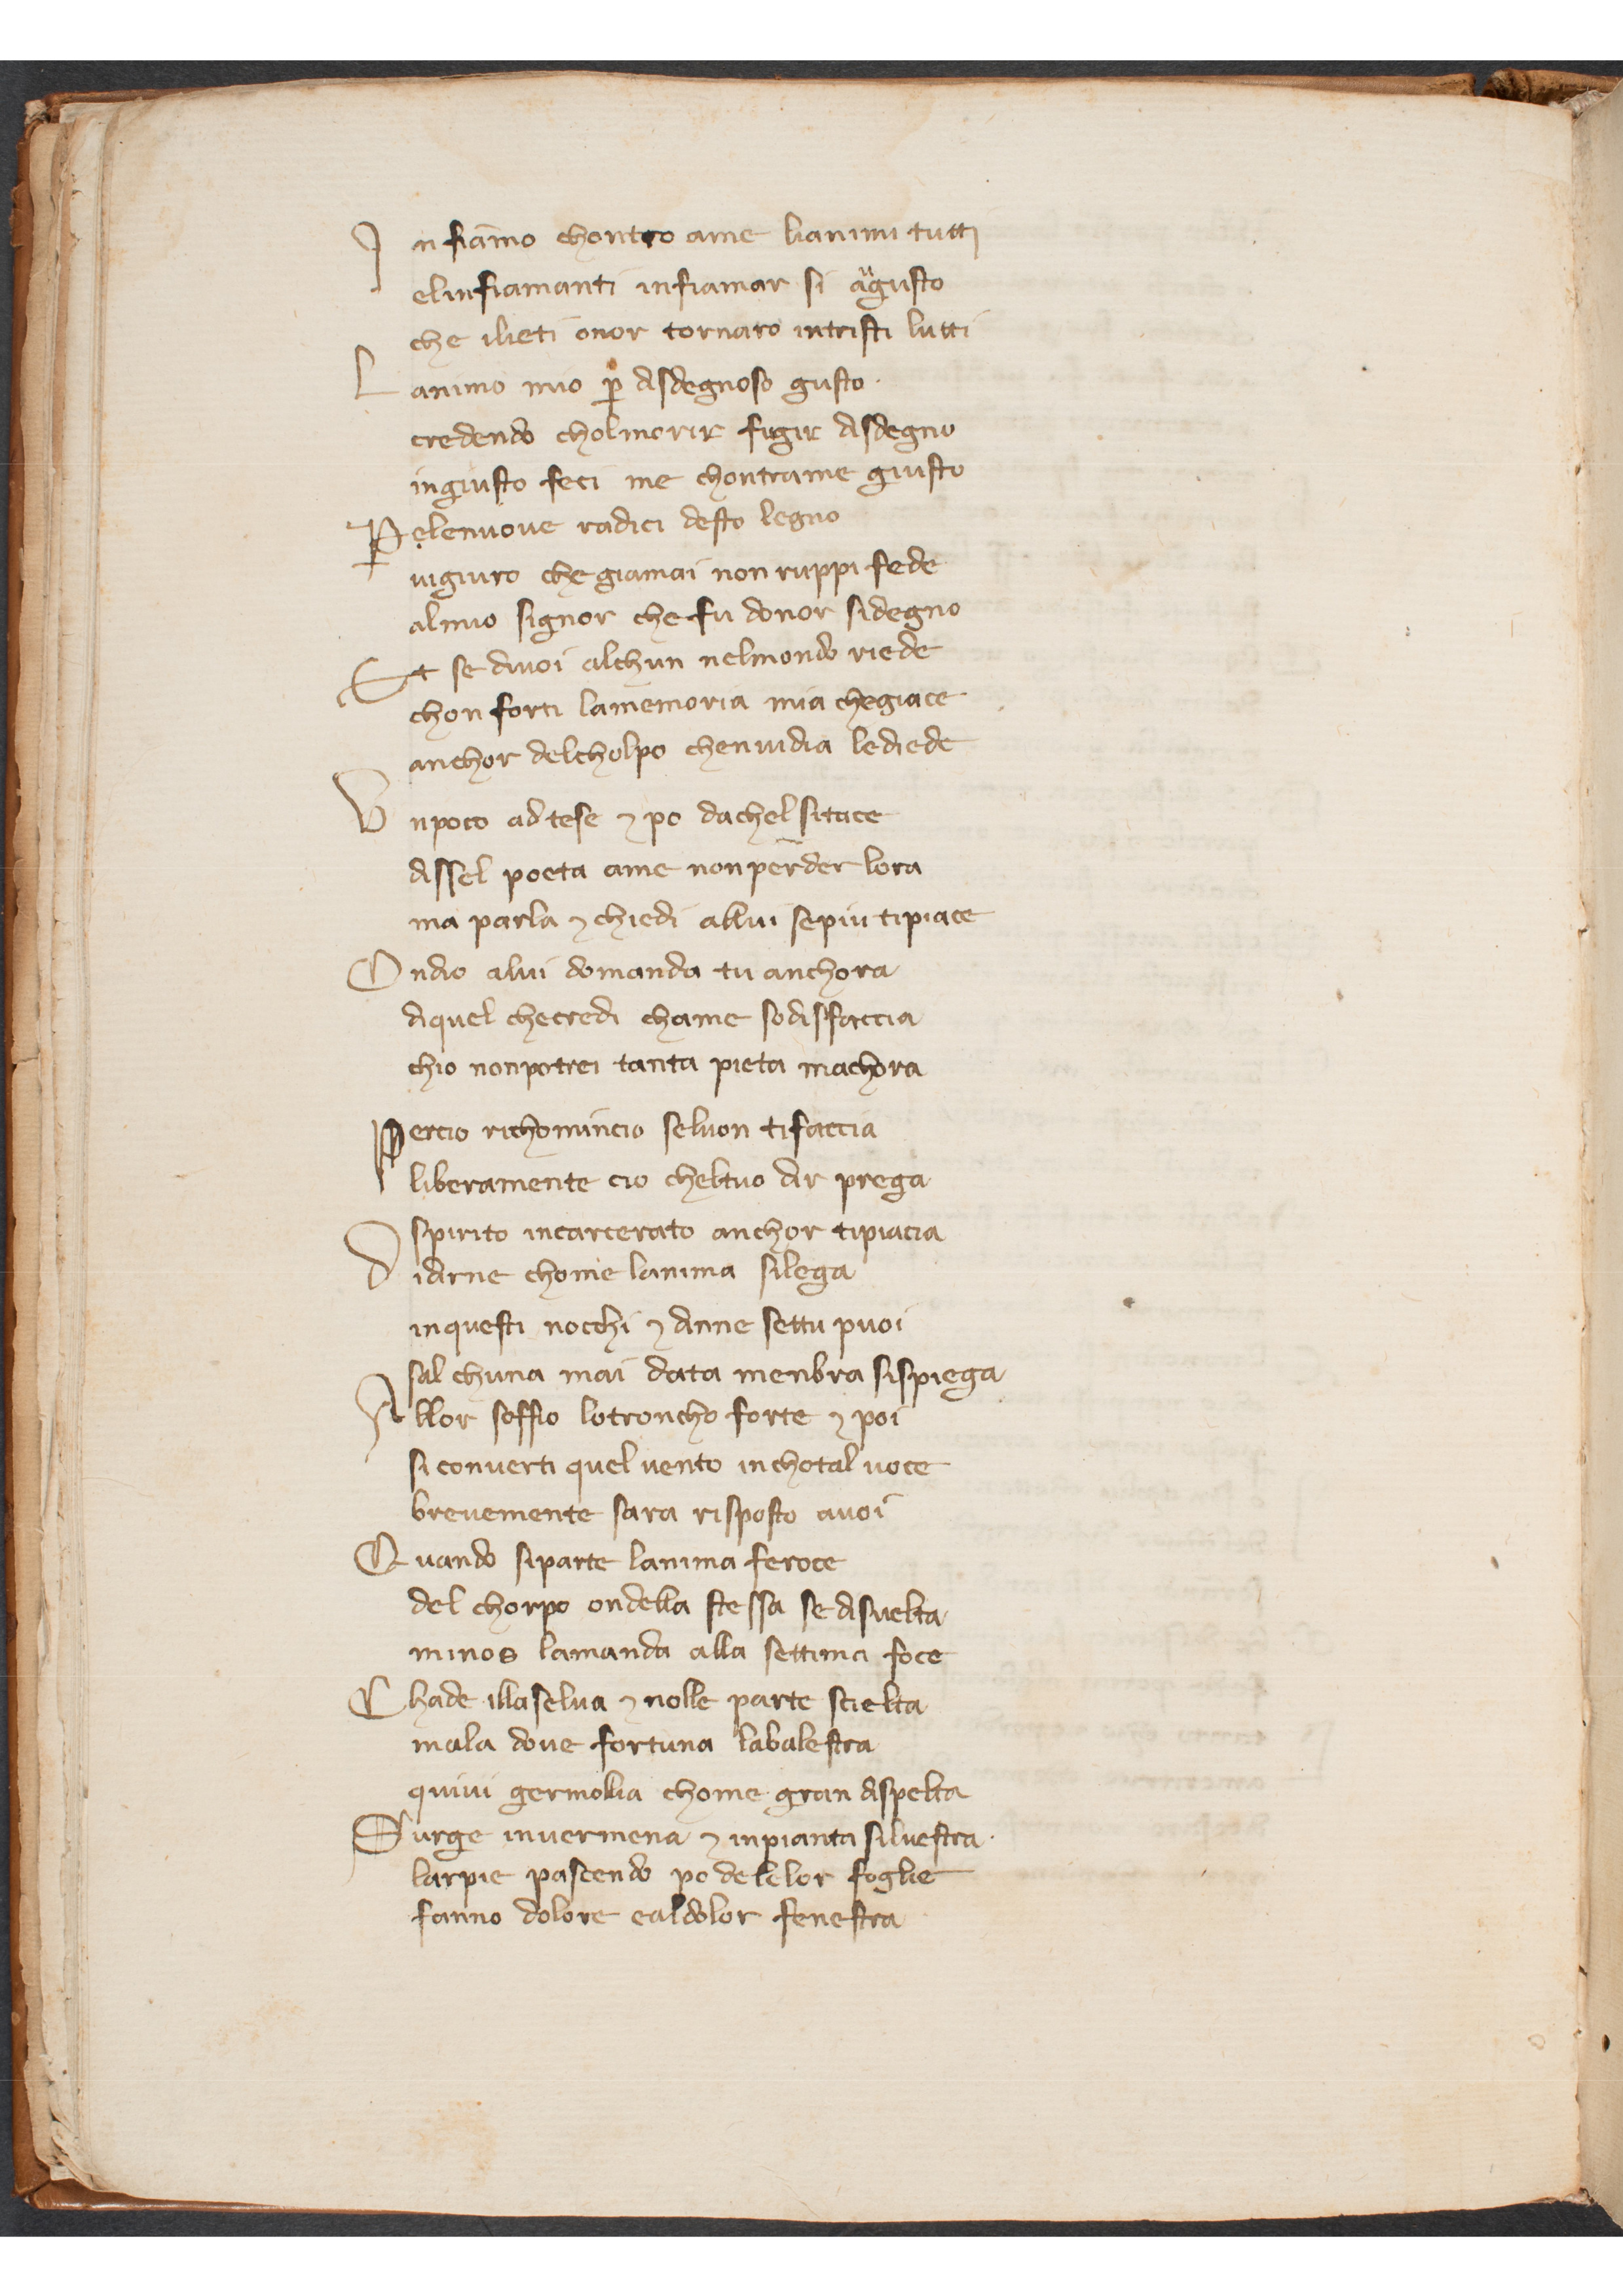 In fiāmo chontro ame lianimi tutti
elinfiamanti infiamar si augusto
che ilieti onor tornaro intristi lutti
Lanimo mio p̱ disdegnoso gusto.
credendo cholmorir fugir disdegno
ingiusto feci me chontrame giusto
P̱elenuove radici desto legno
vigiuro che giamai non ruppi fede
almio signor che fu donor sidegno
Et se divoi alchun nelmondo riede
chon forti lamemoria mia chegiace
anchor delcholpo chenvidia lediede
Vnpoco adtese ⁊ po dachel sitace
dissel poeta ame non perder lora
ma parla ⁊ chiedi allui sepiu tipiace
Ondio alui domanda tu anchora
diquel checredi chame sodisfaccia
chio nonpotrei tanta pieta machora
Percio richomincio seluon tifaccia
liberamente cio cheltuo dir prega
spirito incarcerato anchor tipiacia
Didirne chome lanima silega
inquesti nocchi ⁊ dinne settu puoi
sal chuna mai data menbra sispiega
Allor soffio lotroncho forte ⁊ poi
si converti quel vento inchotal voce
brevemente sara risposto avoi
Quando siparte lanima feroce
del chorpo ondella stessa se disvelta
minos lamanda alla settima foce
Chade illaselva ⁊ nolle parte scielta
mala dove fortuna labalestra
quivi germollia chome gran dispelta
Surge invermena ⁊ inpianta silvestra.
larpie pascendo po delelor foglie
fanno dolore ealdolor fenestra